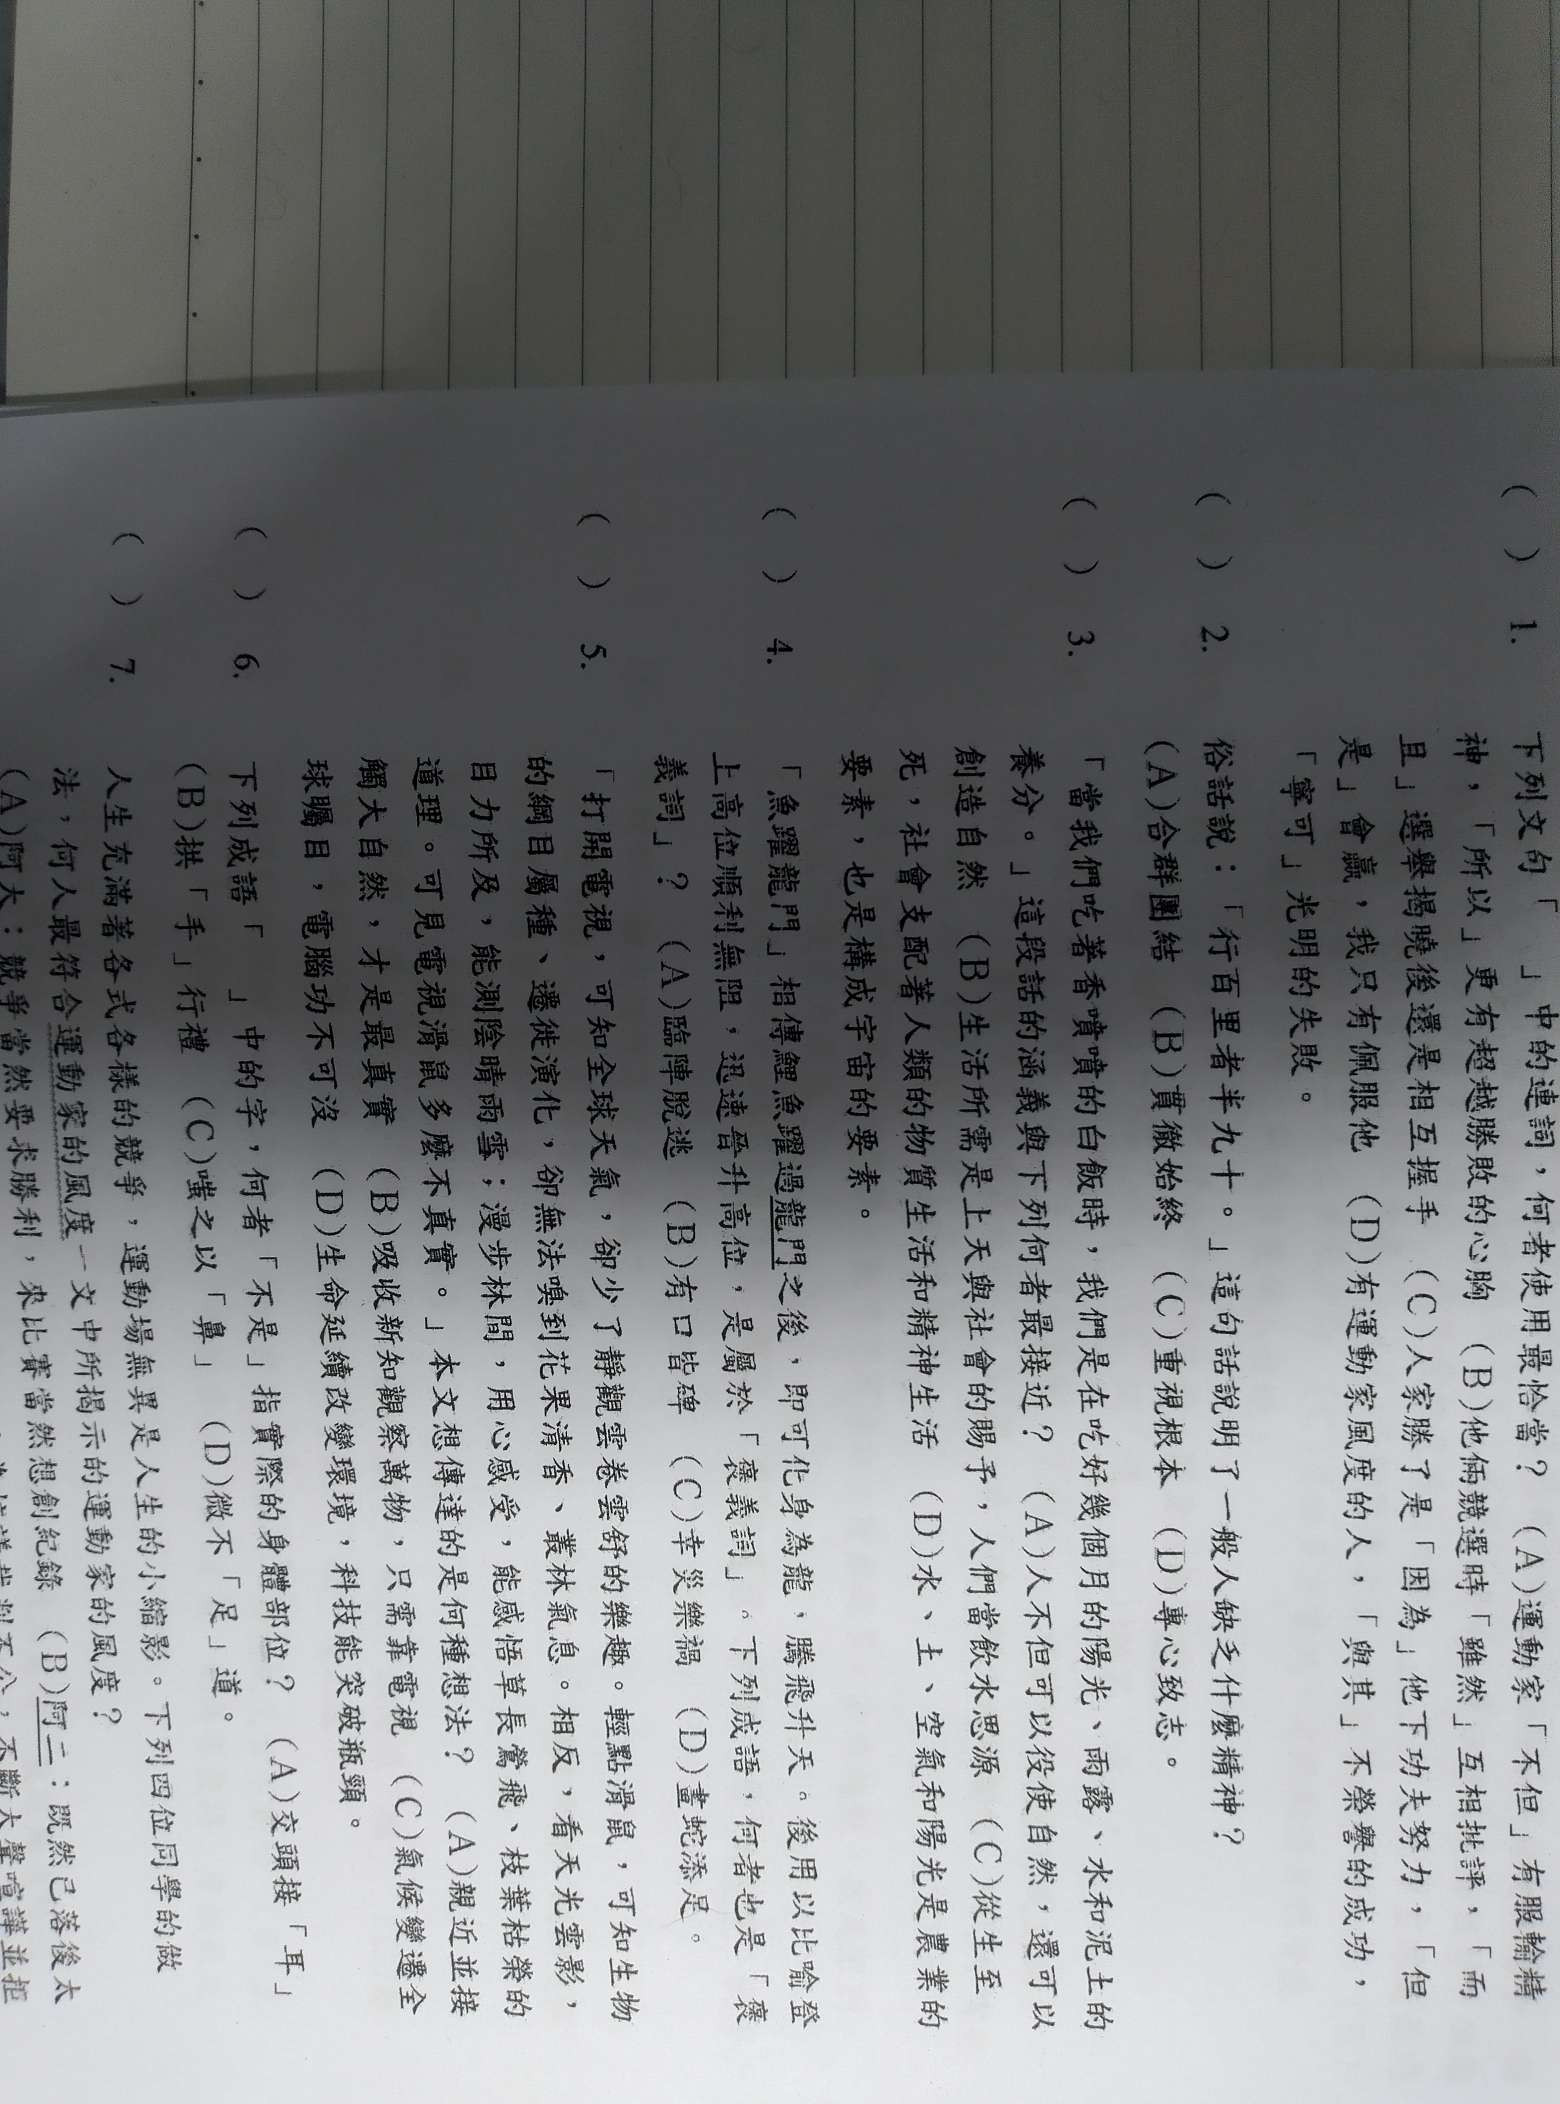 ( ) 1. 下列文句「　」中的連詞,何者使用最恰當? (A)運動家「不但」有服輸精
神,「所以」更有超越勝敗的心胸 (B)他倆競選時「雖然」互相批評,「而
且」選舉揭曉後還是相互握手 (C)人家勝了是「因為」他下功夫努力,「但
是」會贏,我只有佩服他 (D)有運動家風度的人,「與其」不榮譽的成功,
「寧可」光明的失敗。
( ) 2. 俗話說:「行百里者半九十。」這句話說明了一般人缺乏什麼精神?
(A)合群團結 (B)貫徹始終 (C)重視根本 (D)專心致志。
( ) 3. 「當我們吃著香噴噴的白飯時,我們是在吃好幾個月的陽光、雨露、水和泥土的
養分。」這段話的涵義與下列何者最接近? (A)人不但可以役使自然,還可以
創造自然 (B)生活所需是上天與社會的賜予,人們當飲水思源 (C)從生至
死,社會支配著人類的物質生活和精神生活 (D)水、土、空氣和陽光是農業的
要素,也是構成宇宙的要素。
( ) 4. 「魚躍龍門」相傳鯉魚躍過龍門之後,即可化身為龍,騰飛升天。後用以比喻登
上高位順利無阻,迅速晉升高位,是屬於「褒義詞」。下列成語,何者也是「褒
義詞」? (A)臨陣脫逃 (B)有口皆碑 (C)幸災樂禍 (D)畫蛇添足。
( ) 5. 「打開電視,可知全球天氣,卻少了靜觀雲卷雲舒的樂趣。輕點滑鼠,可知生物
的綱目屬種、遷徙演化,卻無法嗅到花果清香、叢林氣息。相反,看天光雲影,
目力所及,能測陰晴雨雪;漫步林間,用心感受,能感悟草長鶯飛、枝葉枯榮的
道理。可見電視滑鼠多麼不真實。」本文想傳達的是何種想法? (A)親近並接
觸大自然,才是最真實 (B)吸收新知觀察萬物,只需靠電視 (C)氣候變遷全
球矚目,電腦功不可沒 (D)生命延續改變環境,科技能突破瓶頸。
( ) 6. 下列成語「　」中的字,何者「不是」指實際的身體部位? (A)交頭接「耳」
(B)拱「手」行禮 (C)嗤之以「鼻」 (D)微不「足」道。
( ) 7. 人生充滿著各式各樣的競爭,運動場無異是人生的小縮影。下列四位同學的做
法,何人最符合運動家的風度一文中所揭示的運動家的風度?
(A)阿大:競爭當然要求勝利,來比賽當然想創紀錄 (B)阿二:既然已落後太
裁判不公,不斷大聲喧譁並拒